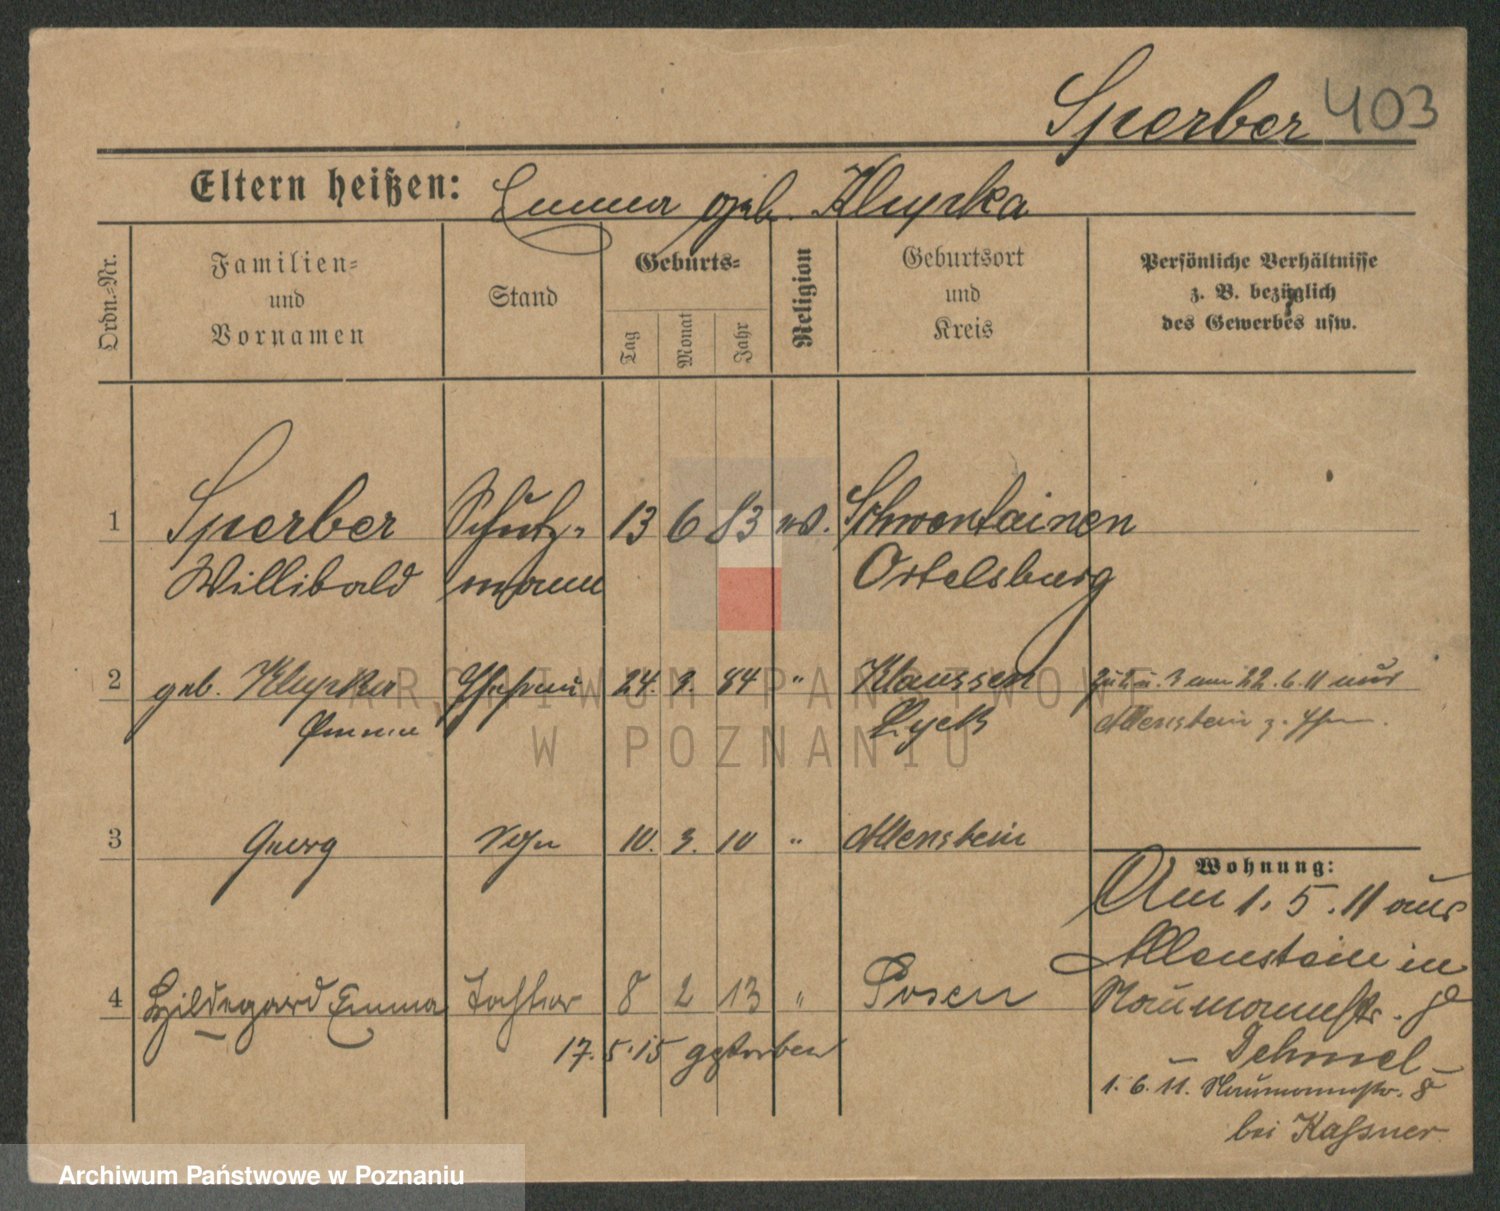 Sperber 403
Eltern heißen: Emma geb. Klupka
Ordn.-Nr.
Familien-
und
Vornamen
Stand
Geburts-
Tag
Monat
Jahr
Religion
Geburtsort
und
Kreis
Persönliche Verhältnisse
z. B. bezüglich
des Gewerbes usw.
1 Sperber Schutz- 13 6 83 ev. Schwentainen
Willibald mann Ortelsburg
2 geb. Klupka Ehefrau 24. 9. 84 " Klaussen Zu 2 u. 3 am 22. 6. 11 aus
Emma Lyck Allenstein z. Ehm.
3 Georg Sohn 10. 3. 10 " Allenstein
Wohnung:
Am 1. 5. 11 aus
Allenstein in
4 Hildegard Emma Tochter 8 2 13 " Posen Naumannstr. 8
17. 5. 15 gestorben
– Dehmel –
1. 6. 11. Naumannstr. 8
bei Kaßner
ARCHIWUM PAŃSTWOWE
W POZNANIU
Archiwum Państwowe w Poznaniu